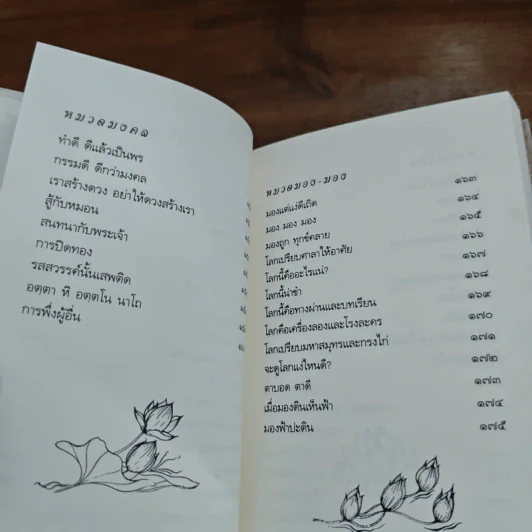 หมวดมงคล
ทำดี ดีแล้วเป็นพร
กรรมดี ดีกว่ามงคล
เราสร้างดวง อย่าให้ดวงสร้างเรา
สู้กับหมอน
สนทนากับพระเจ้า
การปิดทอง
รสสวรรค์นั้นเสพติด
อตฺตา หิ อตฺตโน นาโถ
การพึ่งผู้อื่น
หมวดมอง-มอง
มองแต่แง่ดีเถิด ๑๖๓
มอง มอง มอง ๑๖๔
มองถูก ทุกข์คลาย ๑๖๕
โลกเปรียบศาลาให้อาศัย ๑๖๖
โลกนี้คืออะไรแน่? ๑๖๗
โลกนี้น่าขำ ๑๖๘
โลกนี้คือทางผ่านและบทเรียน ๑๖๙
โลกคือเครื่องลองและโรงละคร ๑๗๐
โลกเปรียบมหาสมุทรและกรงไก่ ๑๗๑
จะดูโลกแง่ไหนดี? ๑๗๒
ตาบอด ตาดี ๑๗๓
เมื่อมองดินเห็นฟ้า ๑๗๔
มองฟ้าปะดิน ๑๗๕